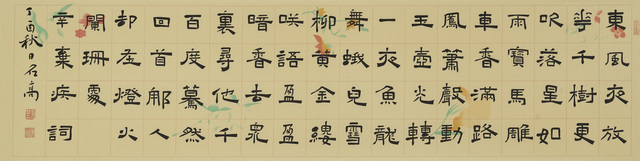 東風夜放
華千樹更
吹落星如
雨寶馬雕
車香滿路
鳳簫聲動
玉壺光轉
一夜魚龍
舞蛾兒雪
柳黃金縷
咲語盈盈
暗香去眾
裏尋他千
百度驀然
回首那人
却在燈火
闌珊處
辛棄疾詞
丁酉秋日石高